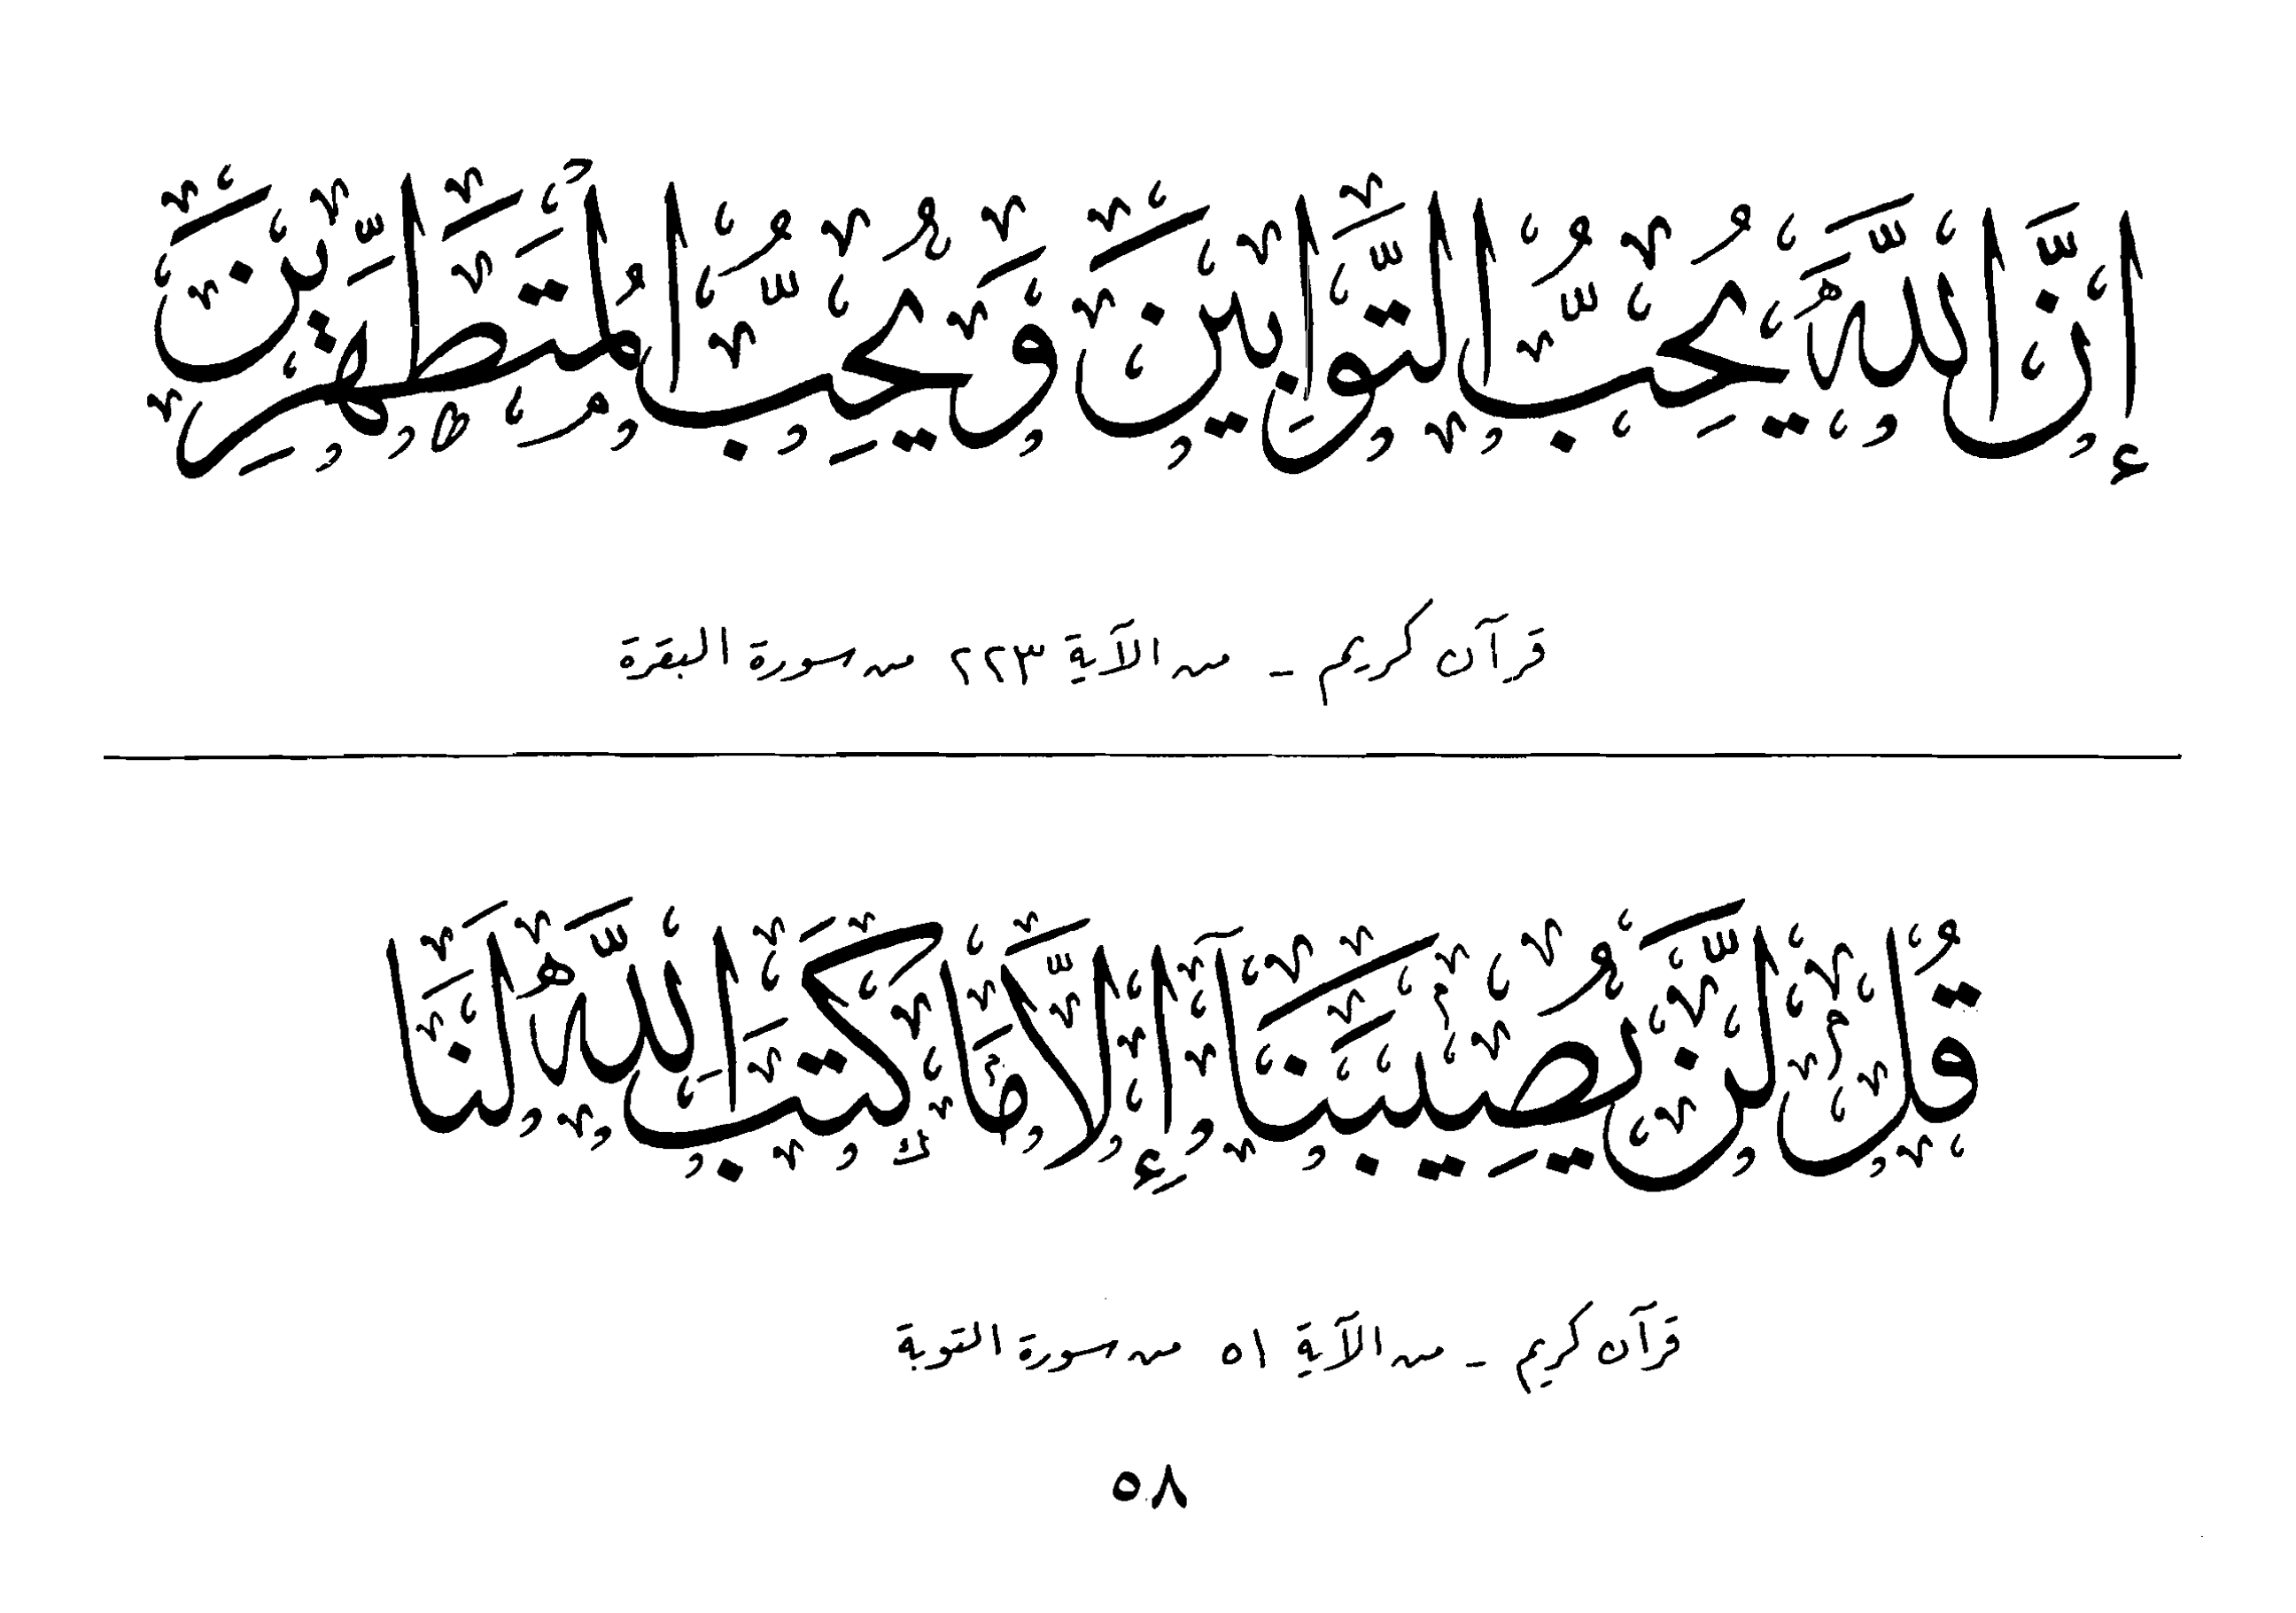 إِنَّ اللَّهَ يُحِبُّ التَّوَّابِينَ وَيُحِبُّ الْمُتَطَهِّرِينَ
قرآن كريم - من الآية ٢٢٣ من سورة البقرة
قُل لَّن يُصِيبَنَا إِلَّا مَا كَتَبَ اللَّهُ لَنَا
قرآن كريم - من الآية ٥١ من سورة التوبة
٥٨